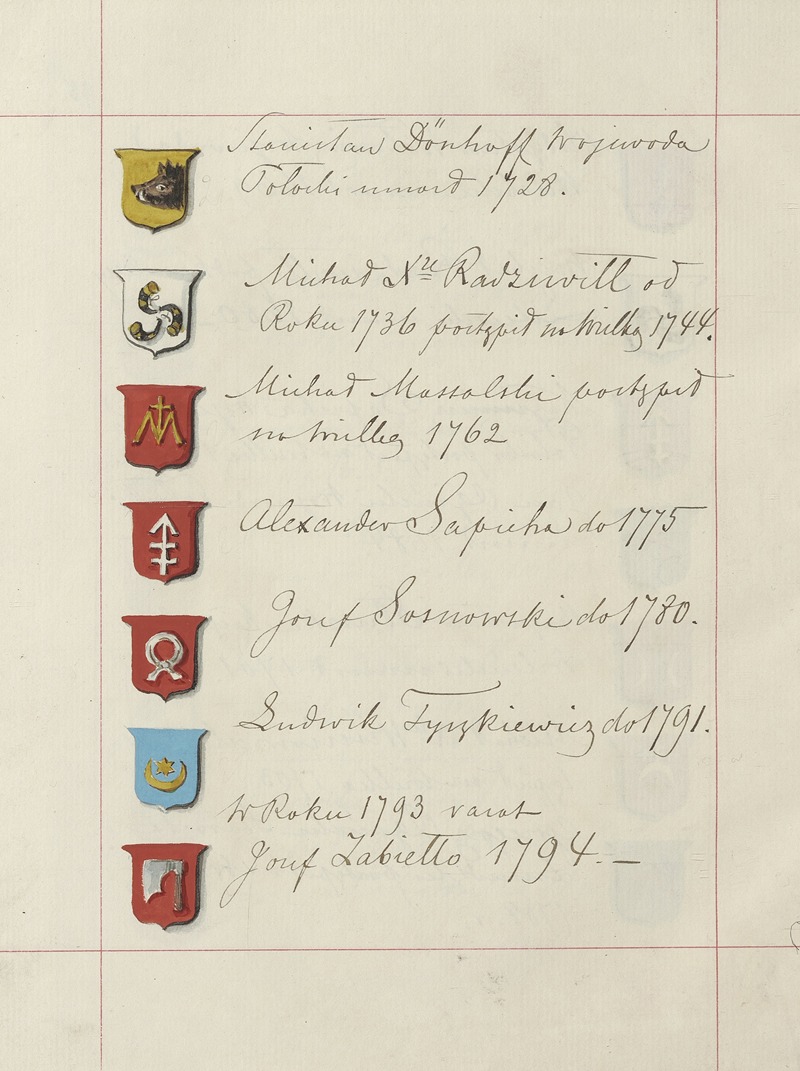 Stanisław Dönhoff Wojewoda
Połocki umarł 1728.
Michał Xże Radziwiłł od
Roku 1736 postąpił na Wielką 1744.
Michał Massalski postąpił
na Wielką 1762
Alexander Sapieha do 1775
Jozef Sosnowski do 1780.
Ludwik Tyszkiewicz do 1791.
W Roku 1793 vacat
Jozef Zabiełło 1794. —